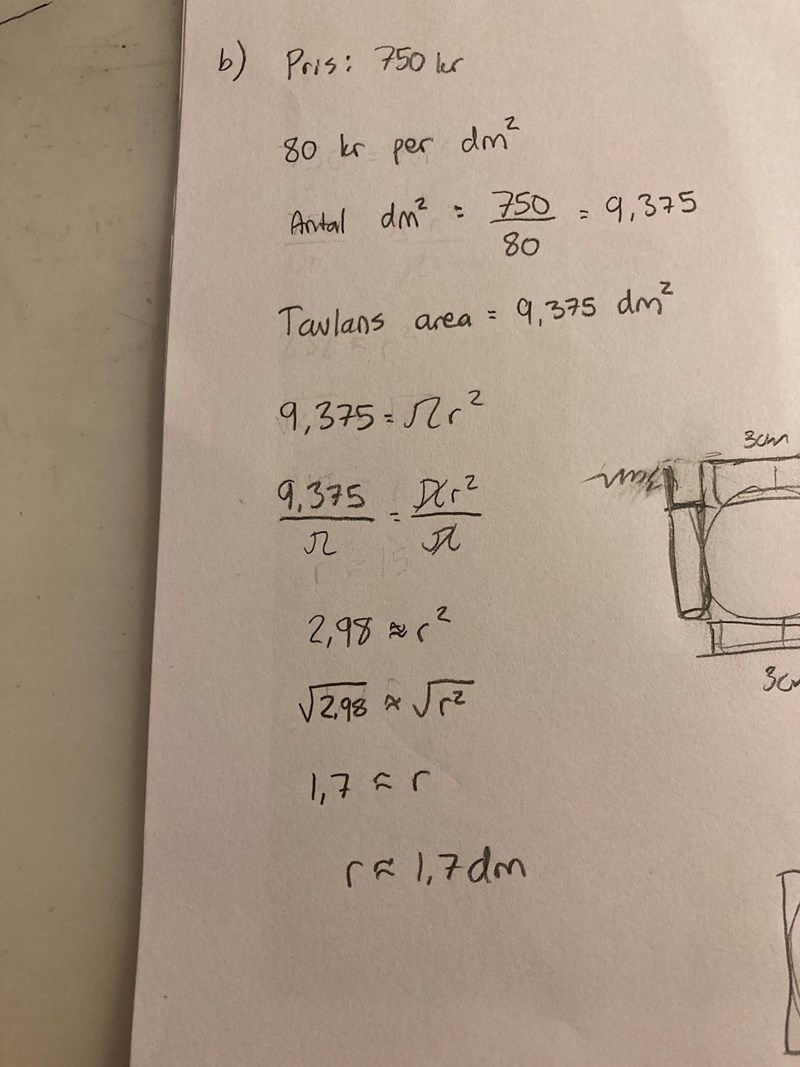 b) Pris: 750 kr
80 kr per dm²
Antal dm² = 750/80 = 9,375
Tavlans area = 9,375 dm²
9,375 = πr²
9,375/π = πr²/π
2,98 ≈ r²
√2,98 ≈ √r²
1,7 ≈ r
r ≈ 1,7 dm
3cm
3c